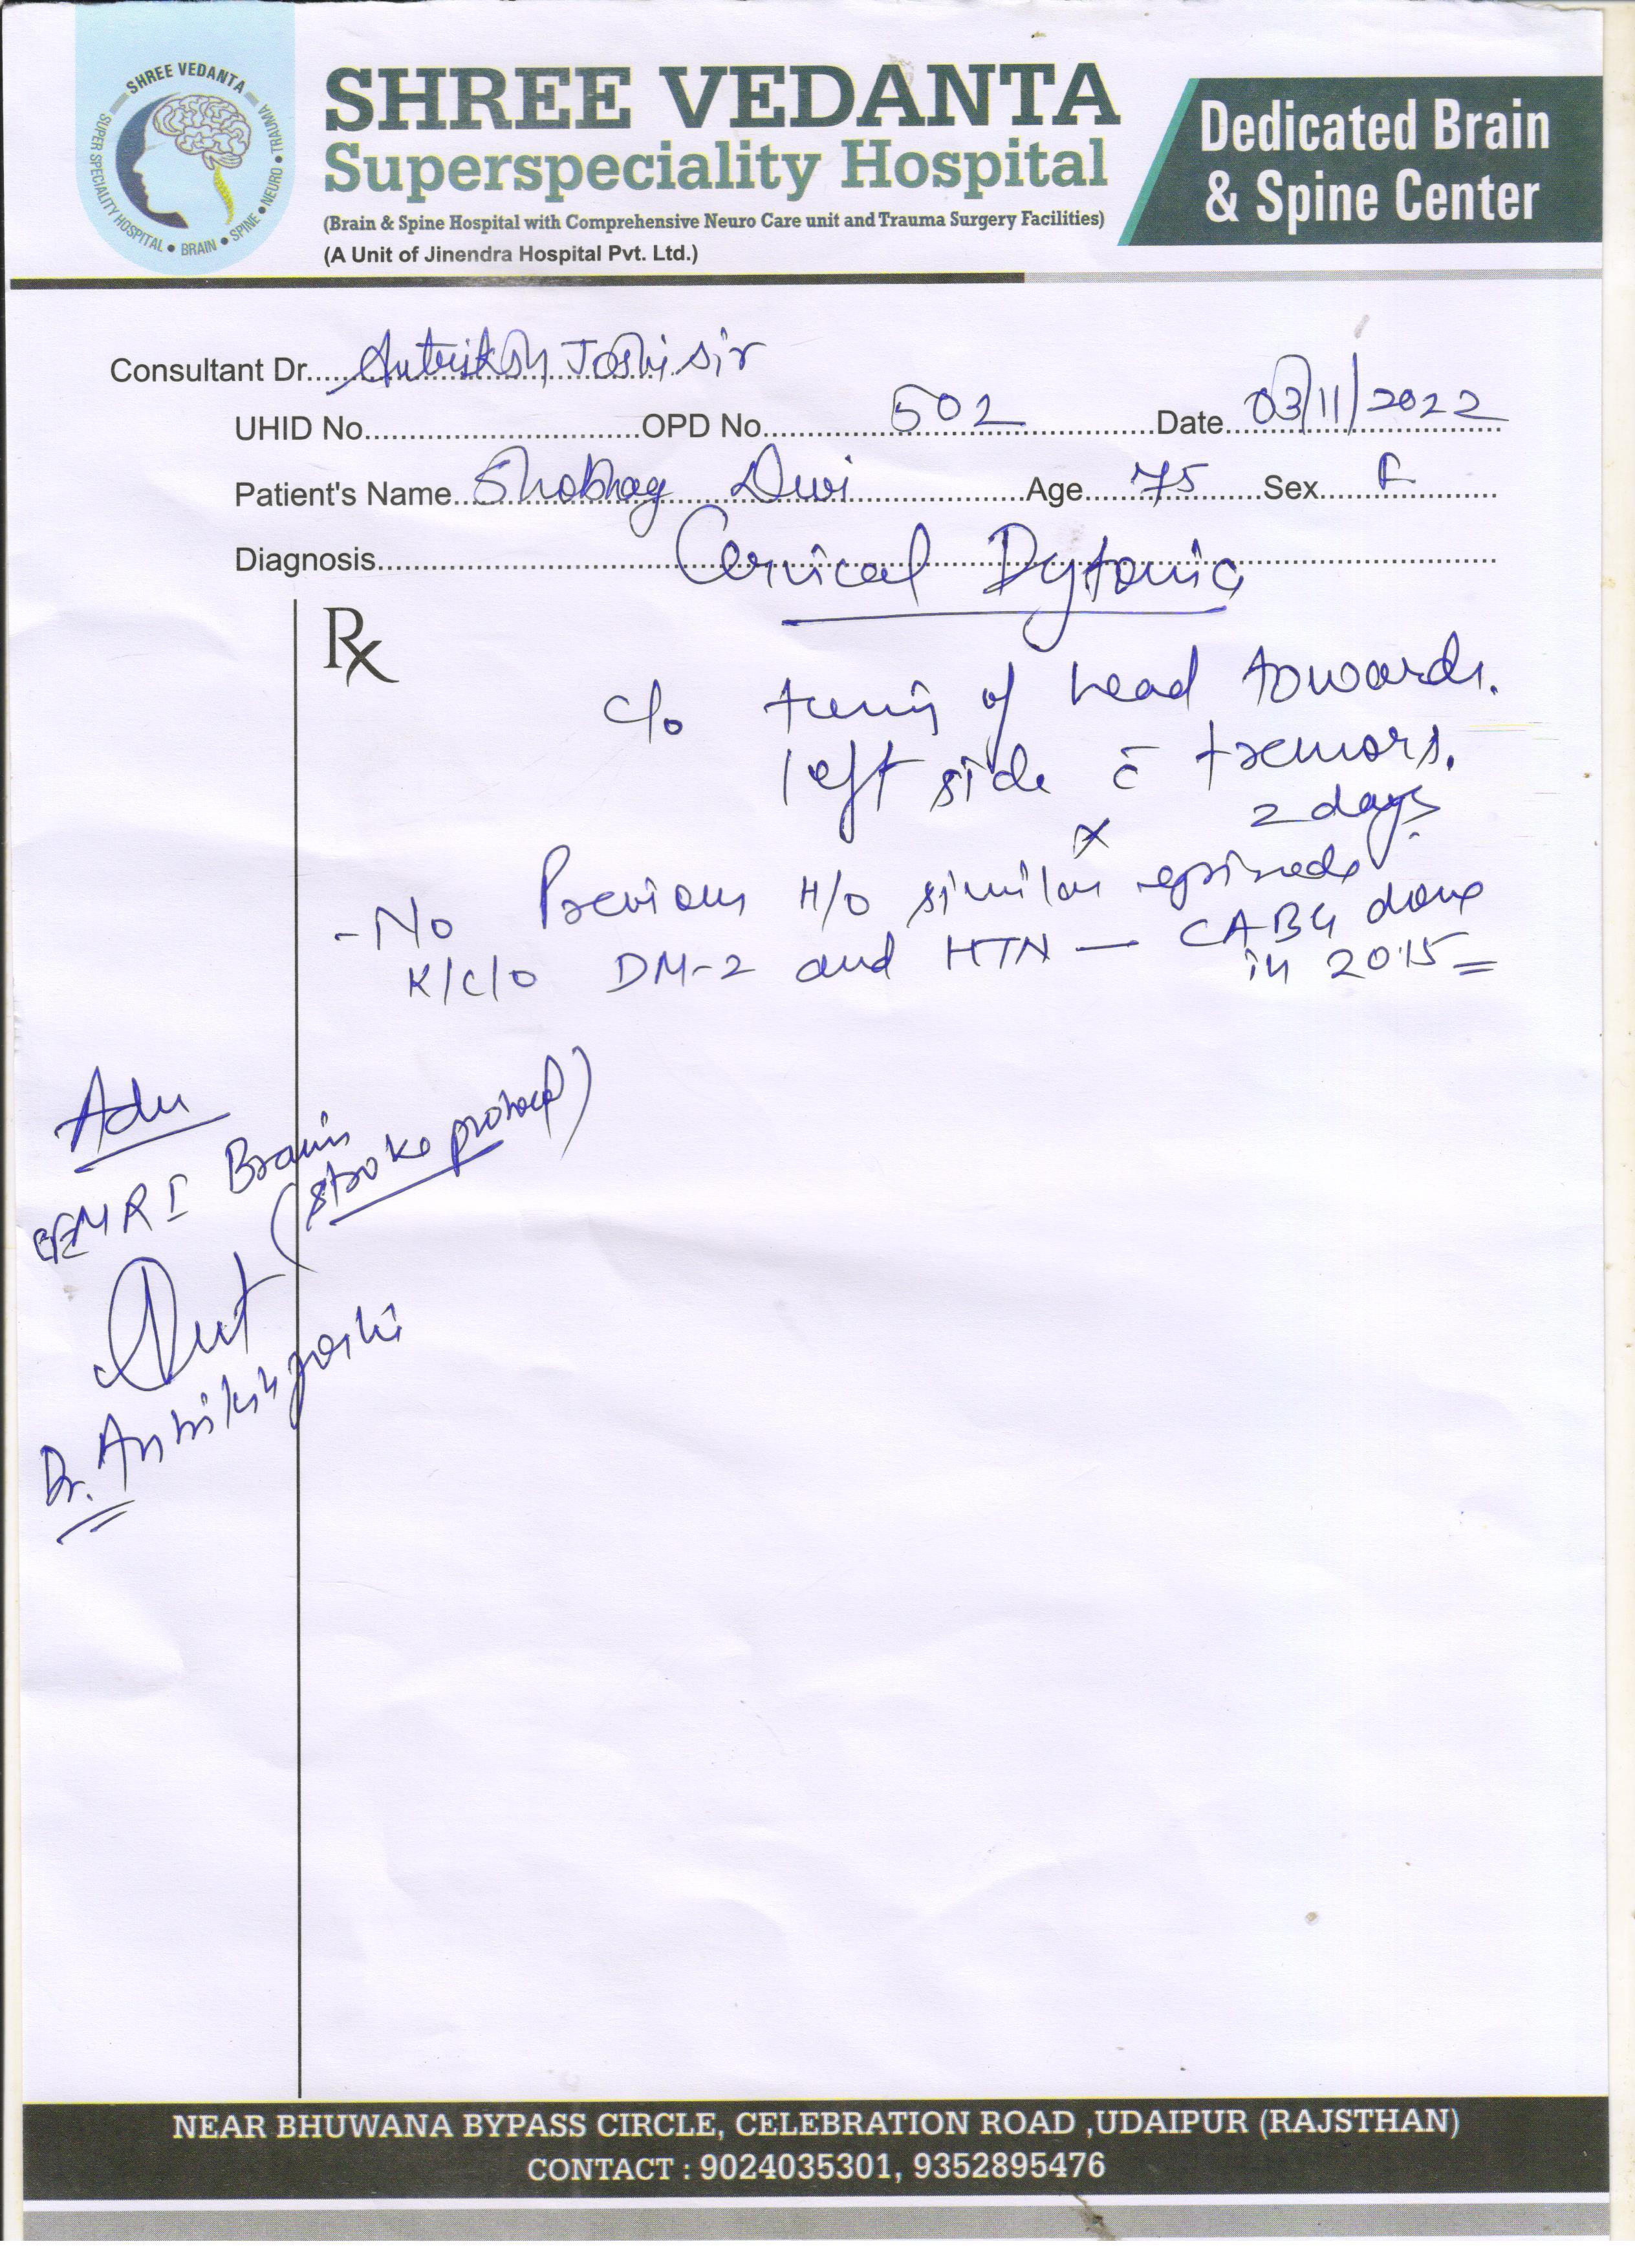 SHREE VEDANTA
SUPER SPECIALITY HOSPITAL • BRAIN • SPINE • NEURO • TRAUMA
SHREE VEDANTA
Superspeciality Hospital
(Brain & Spine Hospital with Comprehensive Neuro Care unit and Trauma Surgery Facilities)
(A Unit of Jinendra Hospital Pvt. Ltd.)
Dedicated Brain
& Spine Center
Consultant Dr. Antriksh Joshi sir
UHID No. OPD No. 502 Date 03/11/2022
Patient's Name Shobhag Devi Age 75 Sex F
Diagnosis Cervical Dytonia
Rx
c/o turnig of head towards.
left side c̄ tremors.
x 2 days
- No Previous H/O similar episode
K/C/O DM-2 and HTN — CABG done
in 2015 =
Adv
MRI Brain
(stroke protocol)
Dr. Antriksh Joshi
NEAR BHUWANA BYPASS CIRCLE, CELEBRATION ROAD ,UDAIPUR (RAJSTHAN)
CONTACT : 9024035301, 9352895476